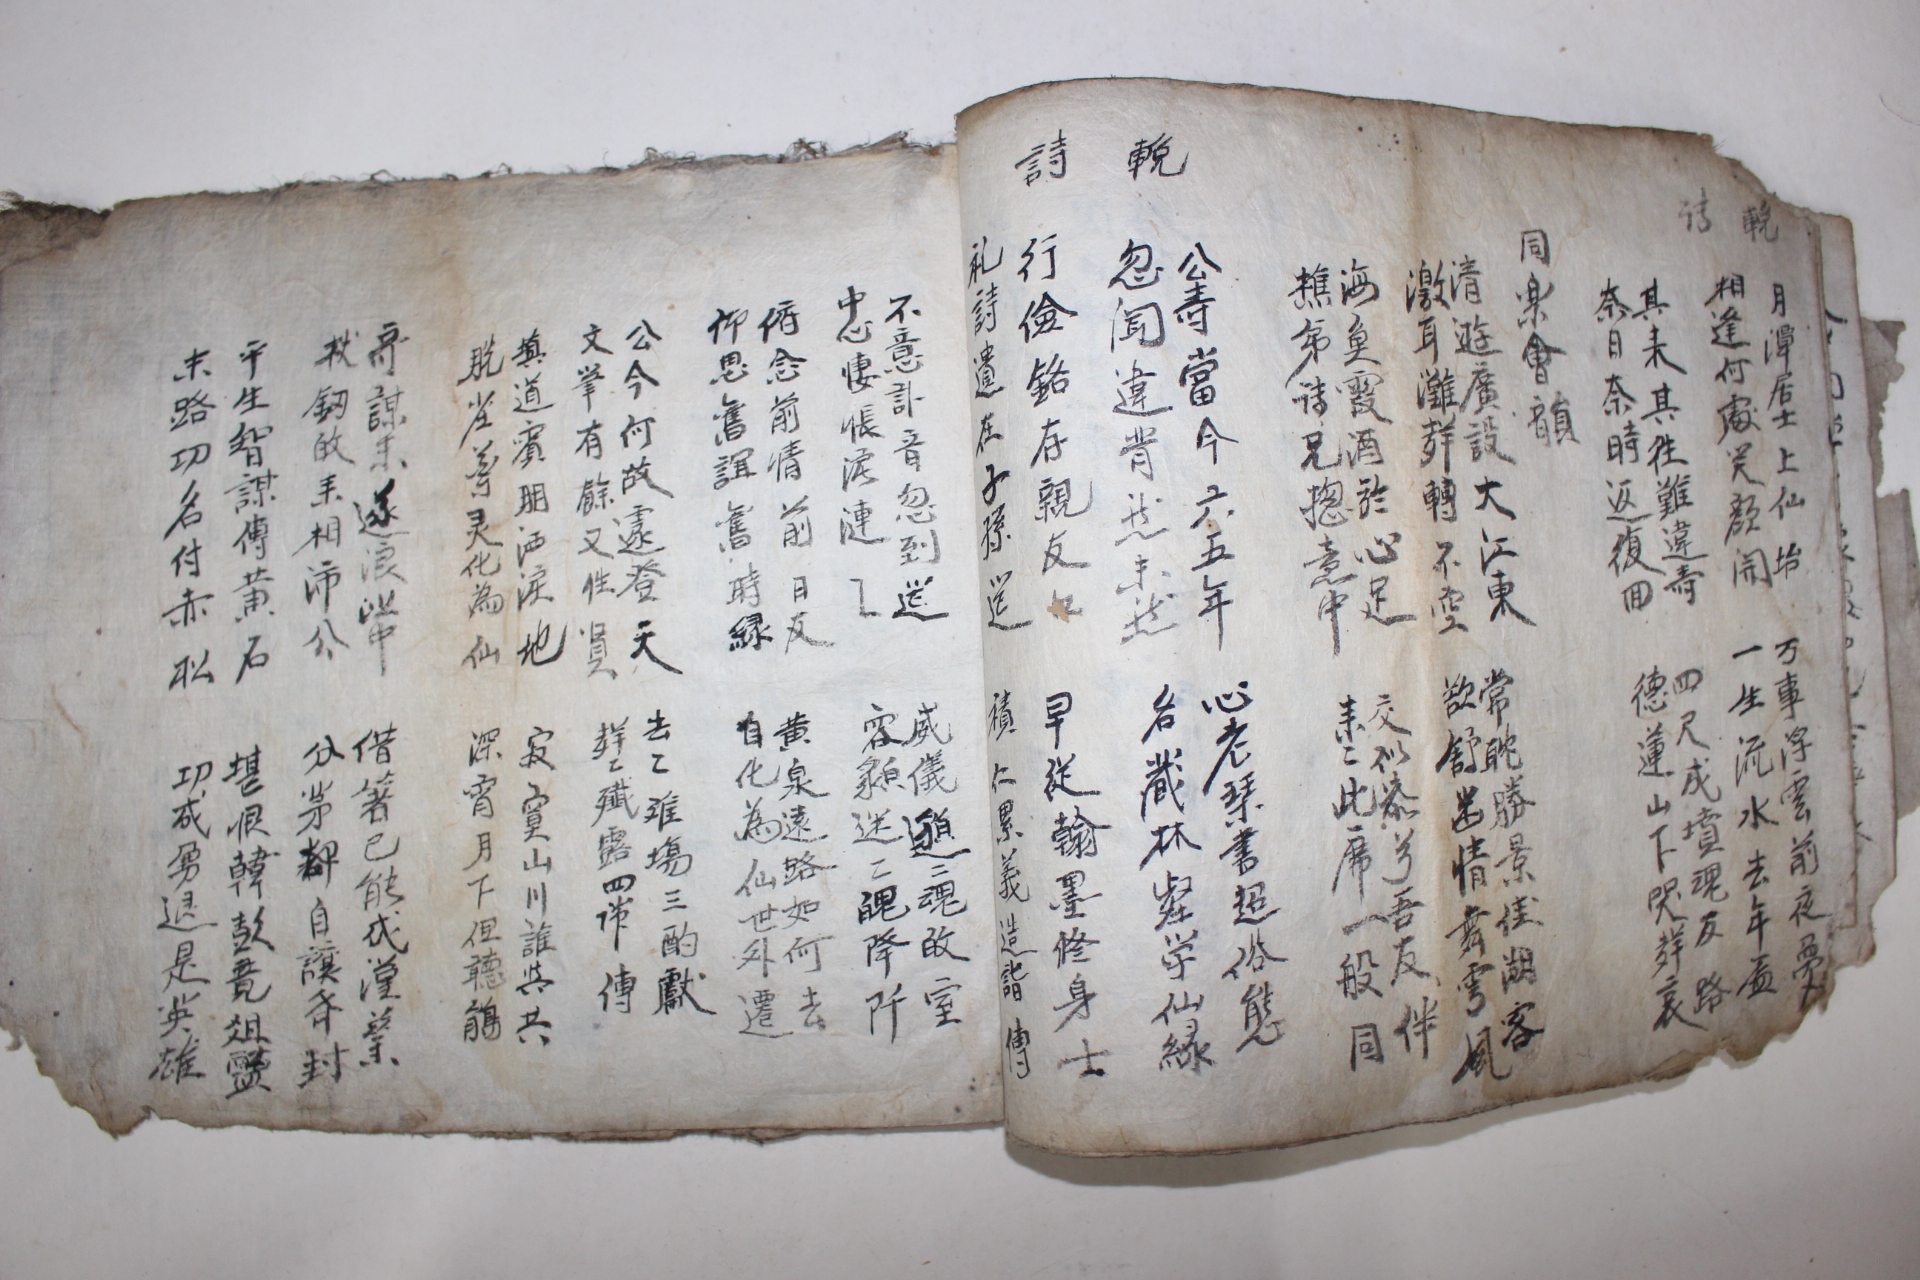 輓詩
月潭居士上仙坮
万事浮雲前夜夢
相逢何處笑顔開
一生流水去年盃
其来其徃難違壽
四尺成墳魂友路
奈日奈時返復回
德蓮山下哭群哀
同樂會韻
清遊廣設大江東
常眈勝景佳湖客
激耳灘群轉不空
欲舒出情舞雩風
海負霞酒於心足
交似漆兮吾友伴
樵弟詩兄揔意中
来二此席一般同
輓詩
公壽當今六五年
心老琴書超俗態
忽聞違背恍未恍
名蔵林壑学仙緣
行儉銘存親友
早從翰墨修身士
礼詩遺在子孫送
積仁累義造詣傳
不意訃音忽到送
威儀邈二魂故室
中心悽悵淚漣乚
容顔迷乚魄降阡
俯念前情前日友
黄泉遠路如何去
仰思舊誼舊時緣
自化為仙世外遷
公今何故遠登天
去乚难塲三酌獻
文挙有餘又性賢
群乚殲露四常傳
真道賓朋洒淚地
寂寞山川誰與共
脱屣蓬灵化為仙
深霄月下但聽鵑
奇謀未遂浪巡中
借著已能成漢業
杖釼故来相沛公
分茅都自讓齊封
平生智謀傳黄石
堪恨韓彭竟俎醢
末路功名付赤松
功成勇退是英雄